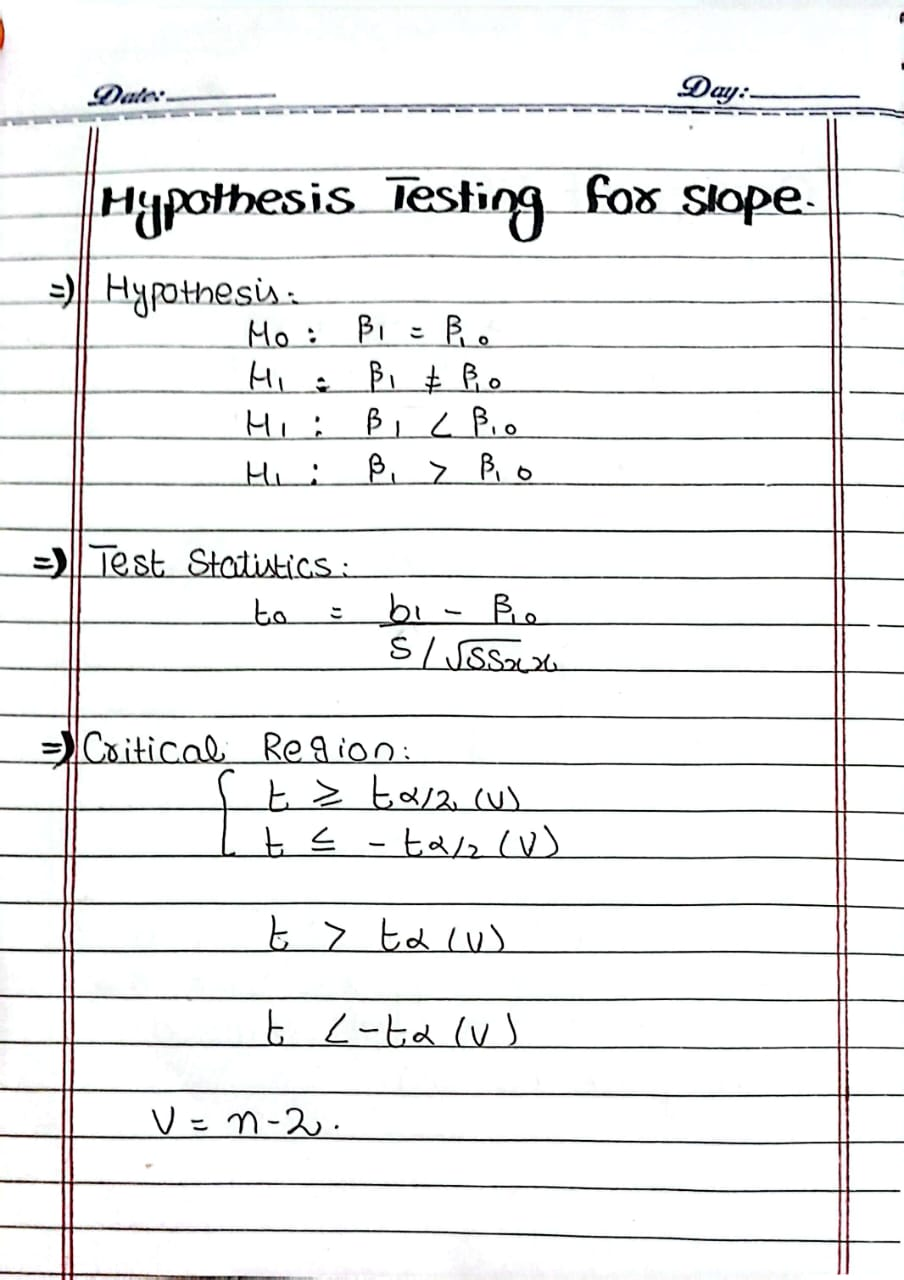 Date: Day:
Hypothesis Testing for slope.
⇒ Hypothesis:
H0 : β1 = β10
H1 : β1 ≠ β10
H1 : β1 < β10
H1 : β1 > β10
⇒ Test Statistics:
to = b1 - β10
S / √SSxx
⇒ Critical Region:
t ≥ tα/2, (v)
t ≤ - tα/2 (v)
t > tα (v)
t < -tα (v)
v = n-2.